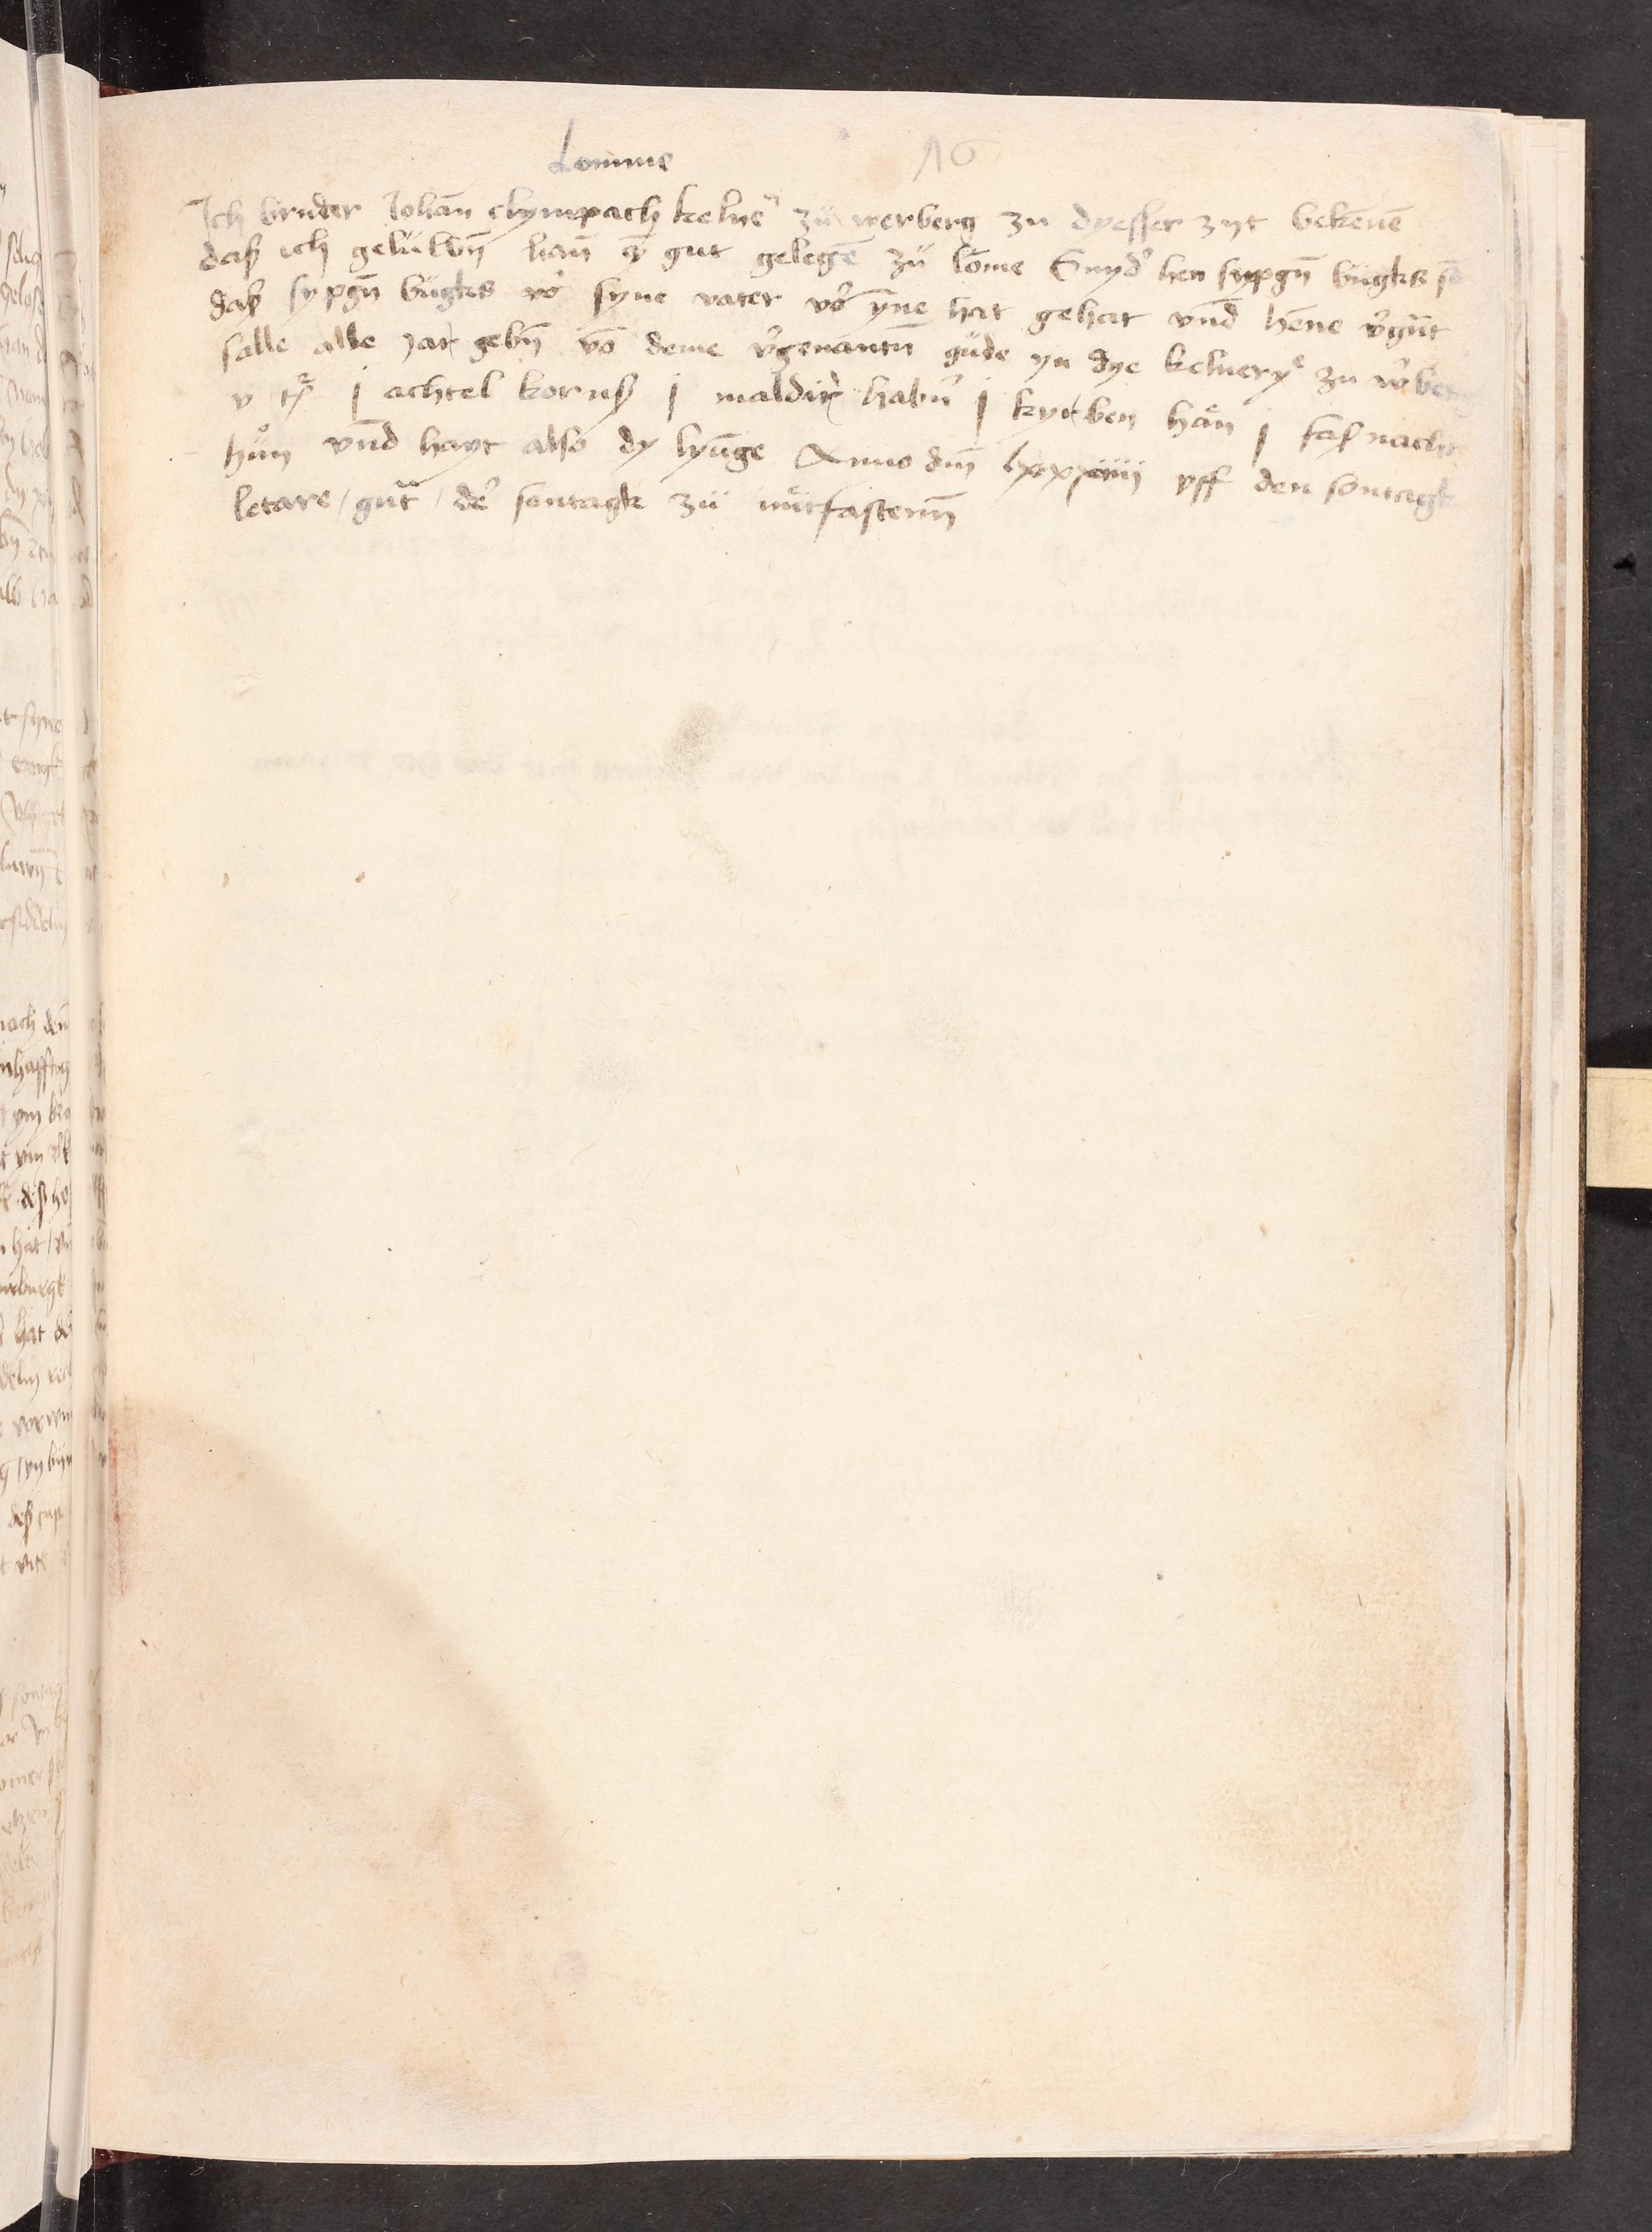 Lomme 16
Ich bruder Johān clympach kelne͛ zü werberg zu dyesser zyt bekēnē
daß ich gelüwȳ hāň eȳ gut gelegē zü lo̊me Snyd͛ hen sypgn̄ bügks so
daß sypgn̄ bügks vo͛ syne vater vo͛ ȳne hat gehat vnd̄ hēne v͛güt
salle alle jar gebn̄ vō deme v͛genantn̄ güde yn dye kelnery zu v͛berg
v tꝭ j achtel kornß j maldir habn͛ j kyrben hån j faßnacht
hu̇n vnd̄ hayt also dy lyūge Anno dn̄i lxxxiiij vff den sontagk
letare / gna͛t / de͛ sontagk zü mitfastenn̄